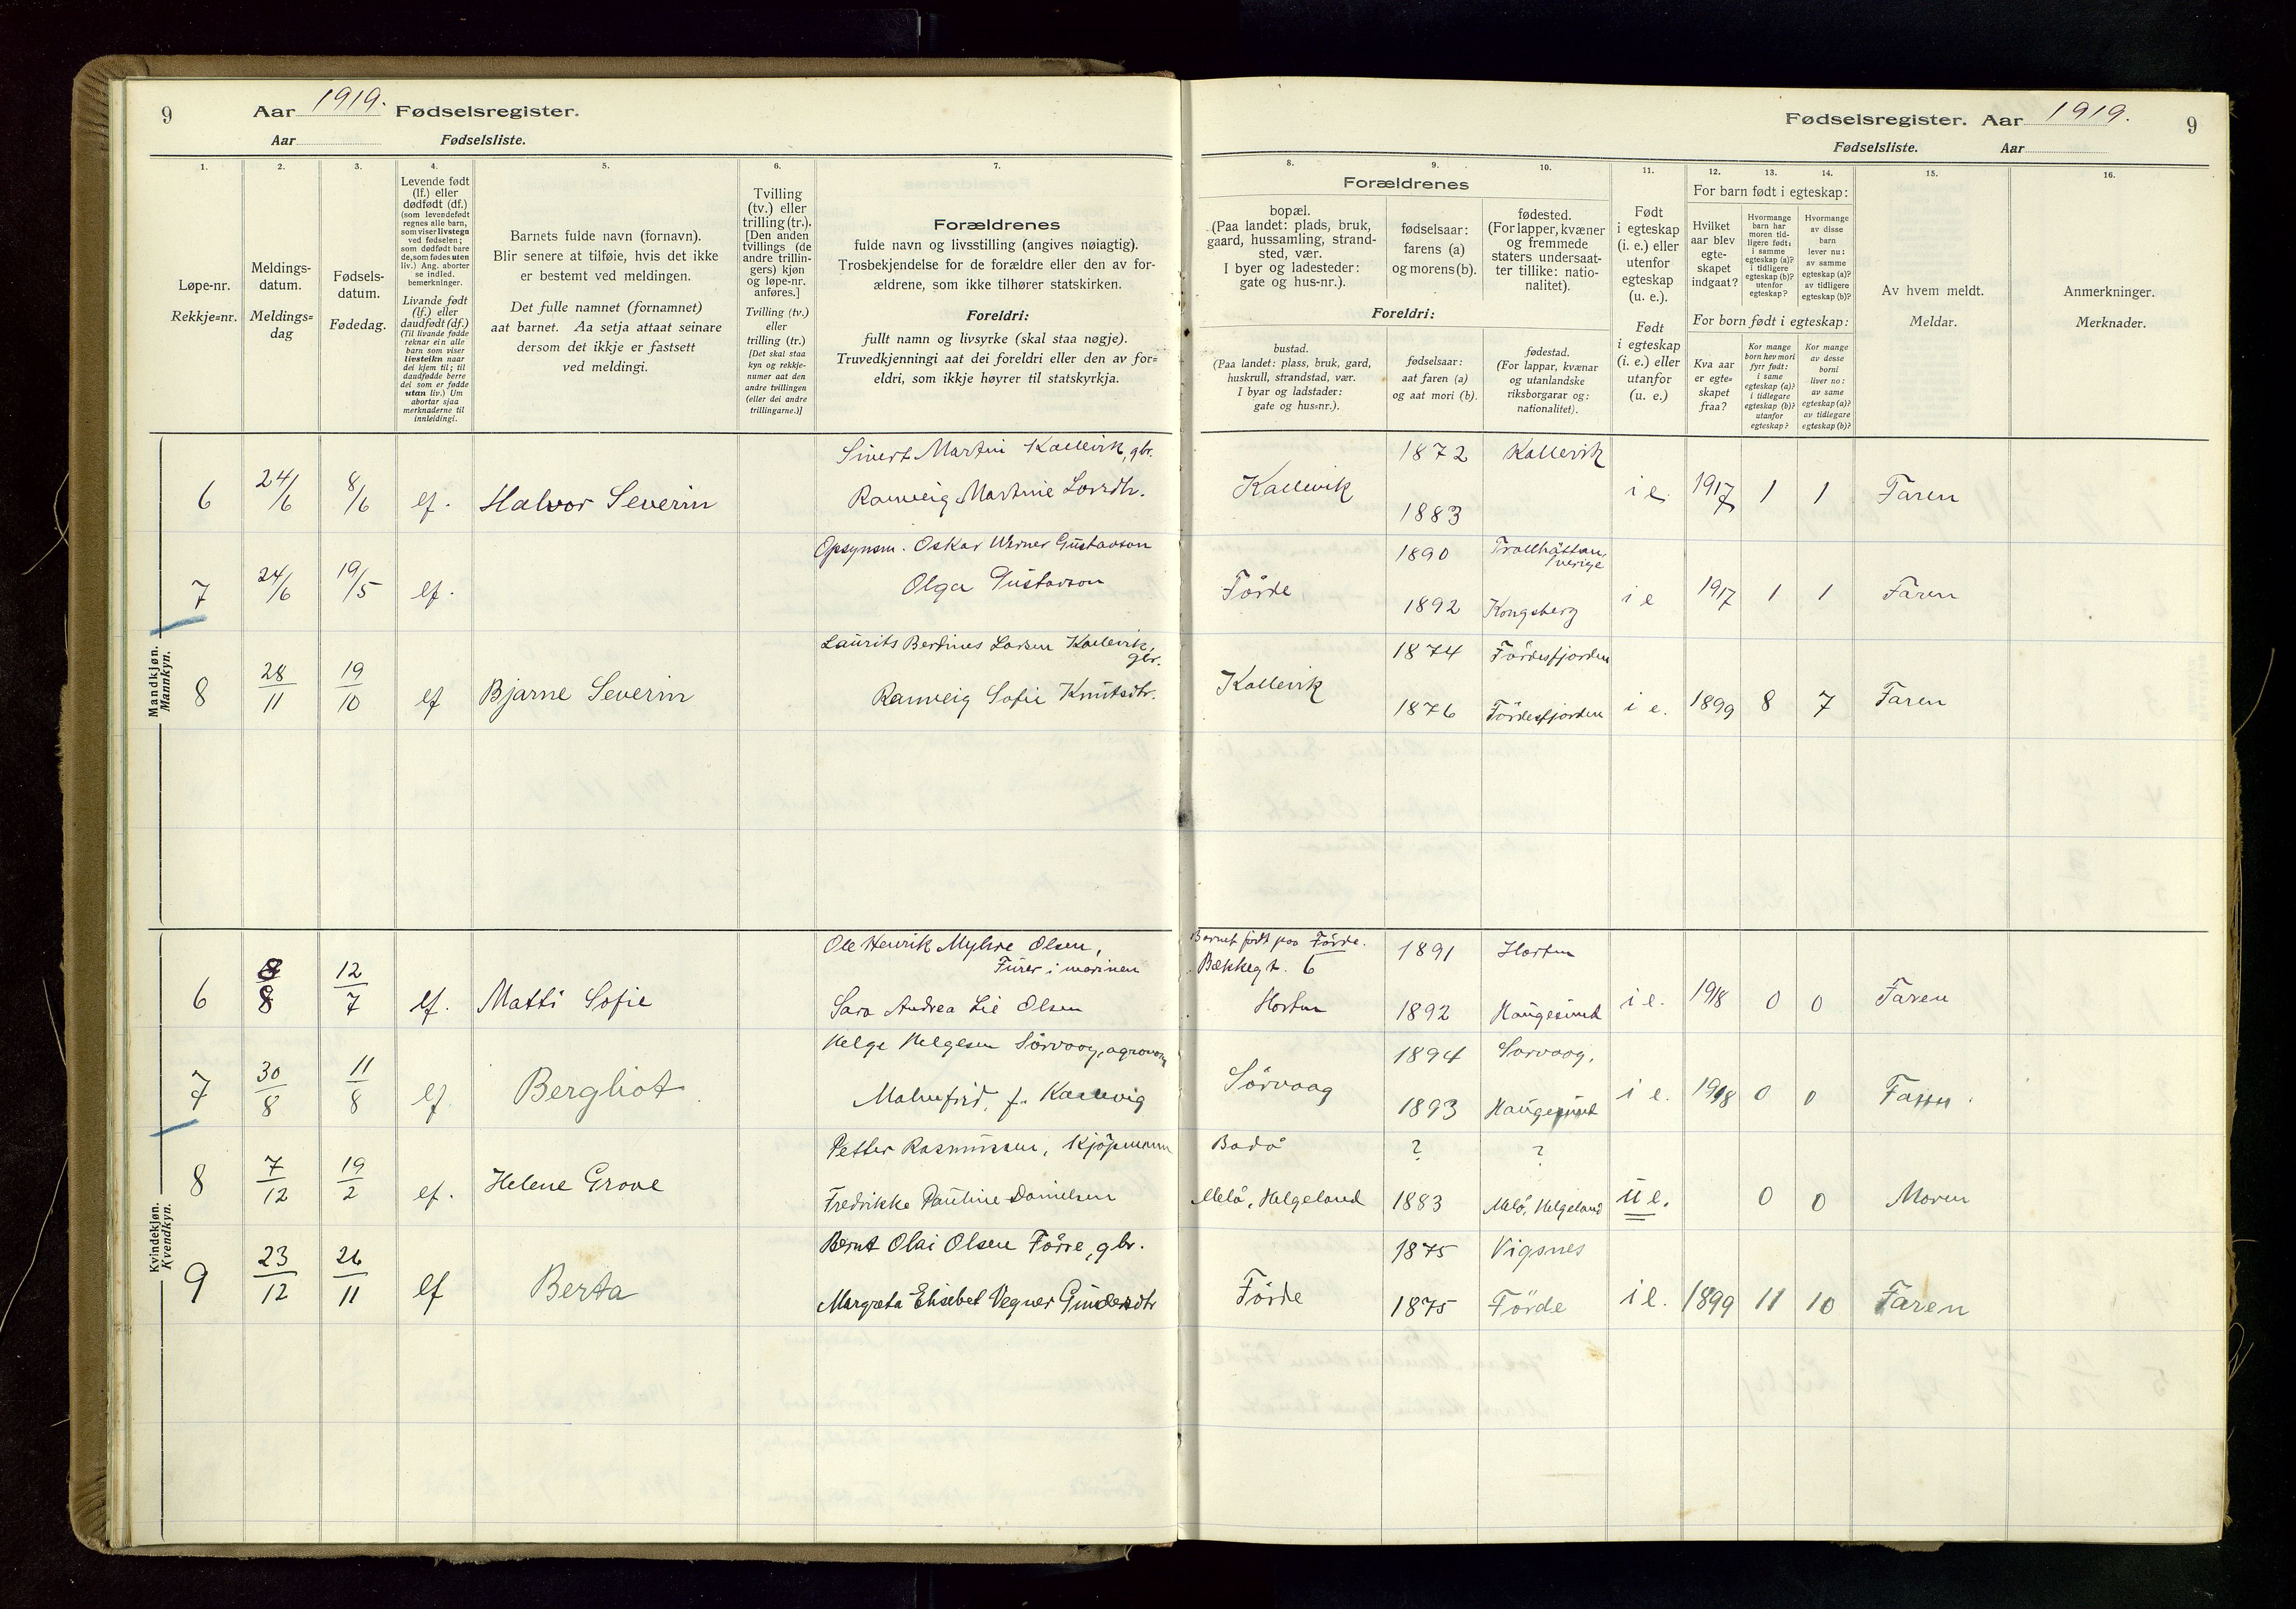 9
Aar 1919. Fødselsregister.
Aar Fødselsliste.
1.
2.
3.
4.
5.
6.
7.
Løpe-nr.
Rekkje=nr.
Meldings-
datum.
Meldings=
dag
Fødsels-
datum.
Fødedag.
Levende født
(lf.) eller
dødfødt (df.)
(som levendefødt
regnes alle barn,
som viser livstegn
ved fødselen;
som dødfødt bare
de, som fødes uten
liv.) Ang. aborter
se indled.
bemerkninger.
Livande født
(lf.) eller
daudfødt (df.)
(Til livande fødde
reknar ein alle
barn som viser
livsteikn naar
dei kjem til; til
daudfødde berre
dei som er fødde
utan liv.) Um
abortar sjaa
merknaderne til
innleidingi.
Barnets fulde navn (fornavn).
Blir senere at tilføie, hvis det ikke
er bestemt ved meldingen.
Det fulle namnet (fornamnet)
aat barnet. Aa setja attaat seinare
dersom det ikkje er fastsett
ved meldingi.
Tvilling
(tv.) eller
trilling (tr.).
[Den anden
tvillings (de
andre trillin-
gers) kjøn
og løpe-nr.
anføres.]
Tvilling (tv.)
eller
trilling (tr.)
[Det skal staa
kyn og rekkje-
numer aat den
andre tvillingen
(eller dei andre
trillingarne.)]
Forældrenes
fulde navn og livsstilling (angives nøiagtig).
Trosbekjendelse for de forældre eller den av for-
ældrene, som ikke tilhører statskirken.
Foreldri:
fullt namn og livsyrke (skal staa nøgje).
Truvedkjenningi aat dei foreldri eller den av for=
eldri, som ikkje høyrer til statskyrkja.
Mandkjøn.
Mannkyn.
Sivert Martin Kallevik, gbr.
6 24/6 8/6 lf. Halvor Severin Ranveig Martine Larsdtr.
Opsynsm. Oskar Werner Gustavson
7 24/6 19/5 lf. Olga Gustavson
Laurits Bertinus Larsen Kallevik,
gbr.
8 28/11 19/10 lf Bjarne Severin Ranveig Sofie Knutsdtr.
Kvindekjøn.
Kvendkyn.
Ole Henrik Myhre Olsen,
Furer i marinen
6 8 12/7 lf. Matti Sofie Sara Andrea Lie Olsen
Helge Helgesen Sørvaag, agronom
7 30/8 11/8 lf. Bergliot Malmfrid, f. Kallevig
Petter Rasmussen, Kjøpmann
8 7/12 19/2 lf. Helene Grove Fredrikke Pauline Danielsen
Bernt Olai Olsen Førre, gbr.
9 23/12 26/11 lf Berta Margreta Elisebet Vegner Gundersdtr
Fødselsregister. Aar 1919.
9
Fødselsliste. Aar
8.
9.
10.
11.
12.
13.
14.
15.
16.
Forældrenes
bopæl.
(Paa landet: plads, bruk,
gaard, hussamling, strand-
sted, vær.
I byer og ladesteder:
gate og hus-nr.).
fødselsaar:
farens (a)
og morens (b).
fødested.
(For lapper, kvæner
og fremmede
staters undersaat-
ter tillike: natio-
nalitet).
Foreldri:
bustad.
(Paa landet: plass, bruk, gard,
huskrull, strandstad, vær.
I byar og ladstader:
gate og hus=nr.).
fødselsaar:
aat faren (a)
og aat mori (b).
fødestad.
(For lappar, kvænar
og utanlandske
riksborgarar og:
nationalitet).
Født
i egteskap
(i. e.) eller
utenfor
egteskap
(u. e.).
Født
i egteskap
(i. e.) eller
utanfor
(u. e.)
For barn født i egteskap:
Hvilket
aar blev
egte-
skapet
indgaat?
Hvormange
barn har
moren tid-
ligere født:
i samme
egteskap (a)?
i tidligere
egteskap (b)?
utenfor
egteskap?
Hvormange
av disse
barn
lever nu:
av samme
egteskap (a)?
av tidligere
egteskap (b)?
For born født i egteskap:
Kva aar
er egte=
skapet
fraa?
Kor mange
born hev mori
fyrr født:
i same
egteskap (a)?
i tidlegare
egteskap (b)?
utanfor
egteskap?
Kor mange
av desse
borni
liver no:
av same
egteskap (a)?
av tidlegare
egteskap (b)?
Av hvem meldt.
Meldar.
Anmerkninger.
Merknader.
1872 Kallevik
Kallevik 1883 i e. 1917 1 1 Faren
1890 Trollhättan,
Sverige
Förde 1892 Kongsberg i e 1917 1 1 Faren
1874 Fördesfjorden
Kallevik 1876 Fördesfjorden i e. 1899 8 7 Faren
Barnet född paa Förde.
Bækkegt. 6 1891 Horten
Horten 1892 Haugesund i e. 1918 0 0 Faren
1894 Sørvaag,
Sørvaag 1893 Haugesund i e. 1918 0 0 Faren
Bodö ? ?
Melö, Helgeland 1883 Melö, Helgeland u e. 0 0 Moren
1875 Vigsnes
Förde 1875 Förde i e. 1899 11 10 Faren